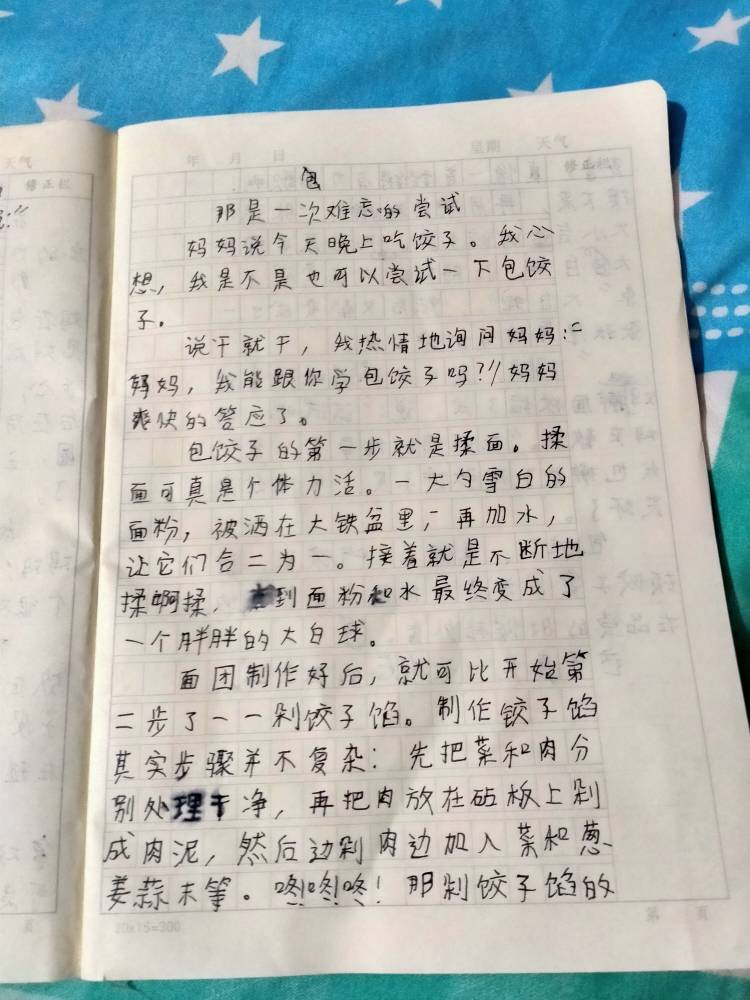 天气
修正栏
年 月 日 星期 天气
修正栏
包
那是一次难忘的尝试
妈妈说今天晚上吃饺子。我心
想，我是不是也可以尝试一下包饺
子。
说干就干，我热情地询问妈妈：“
妈妈，我能跟你学包饺子吗？”妈妈
爽快的答应了。
包饺子的第一步就是揉面。揉
面可真是个体力活。一大勺雪白的
面粉，被洒在大铁盆里，再加水，
让它们合二为一。接着就是不断地
揉啊揉，直到面粉和水最终变成了
一个胖胖的大白球。
面团制作好后，就可比开始第
二步了——剁饺子馅。制作铰子馅
其实步骤并不复杂：先把菜和肉分
别处理干净，再把肉放在砧板上剁
成肉泥，然后边剁肉边加入菜和葱
姜蒜末等。咚咚咚！那剁饺子馅的
20×15=300
第 页
页